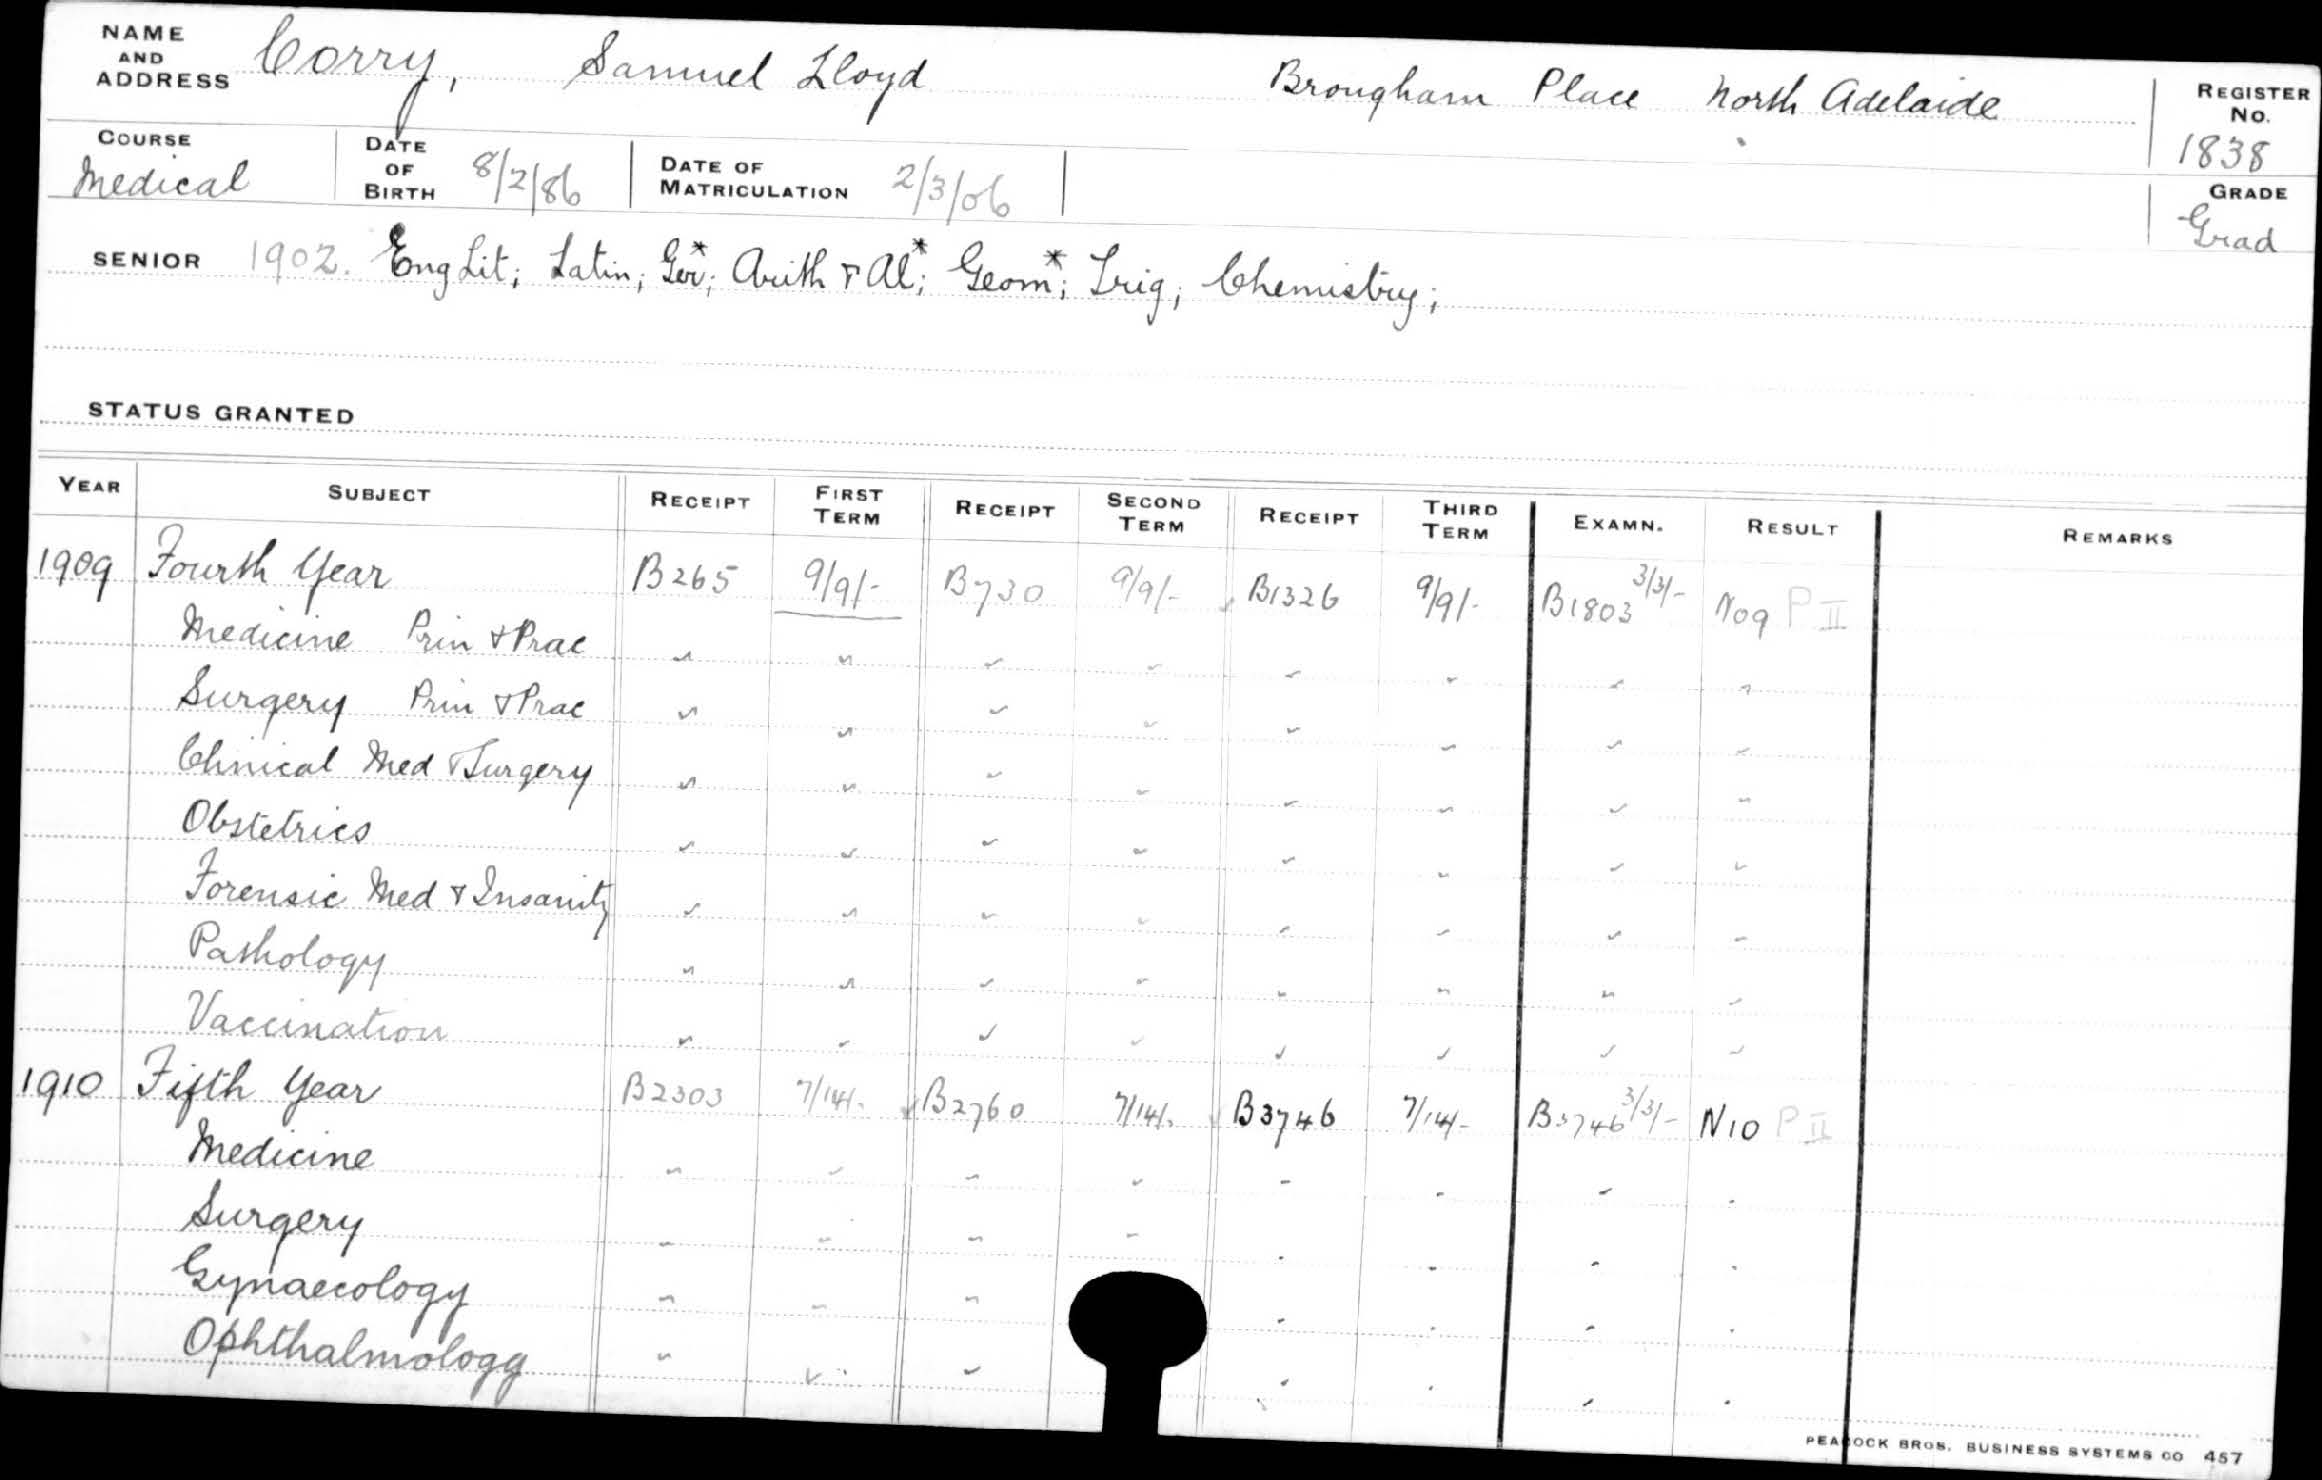 NAME AND ADDRESS Corry, Samuel Lloyd Brougham Place North Adelaide
REGISTER No. 1838
COURSE Medical
DATE OF BIRTH 8/2/86
DATE OF MATRICULATION 2/3/06
GRADE Grad
SENIOR 1902. Eng Lit; Latin; Ger*; Arith & Al*; Geom*; Trig; Chemistry;
STATUS GRANTED
YEAR SUBJECT RECEIPT FIRST TERM RECEIPT SECOND TERM RECEIPT THIRD TERM EXAMN. RESULT REMARKS
1909 Fourth Year B265 9/9/- B730 9/9/- B1326 9/9/- B1803 3/3/- N09 P II
Medicine Prin & Prac
Surgery Prin & Prac
Clinical Med & Surgery
Obstetrics
Forensic Med & Insanity
Pathology
Vaccination
1910 Fifth Year B2303 7/14/- B2760 7/14/- B3746 7/14/- B3746 3/3/- N10 P II
Medicine
Surgery
Gynaecology
Ophthalmology
PEACOCK BROS. BUSINESS SYSTEMS CO 457